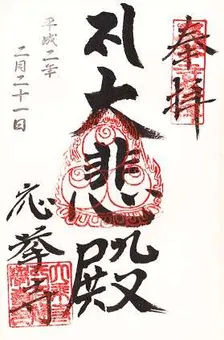 奉拝
礼大悲殿
平成二年
二月二十一日
応挙寺